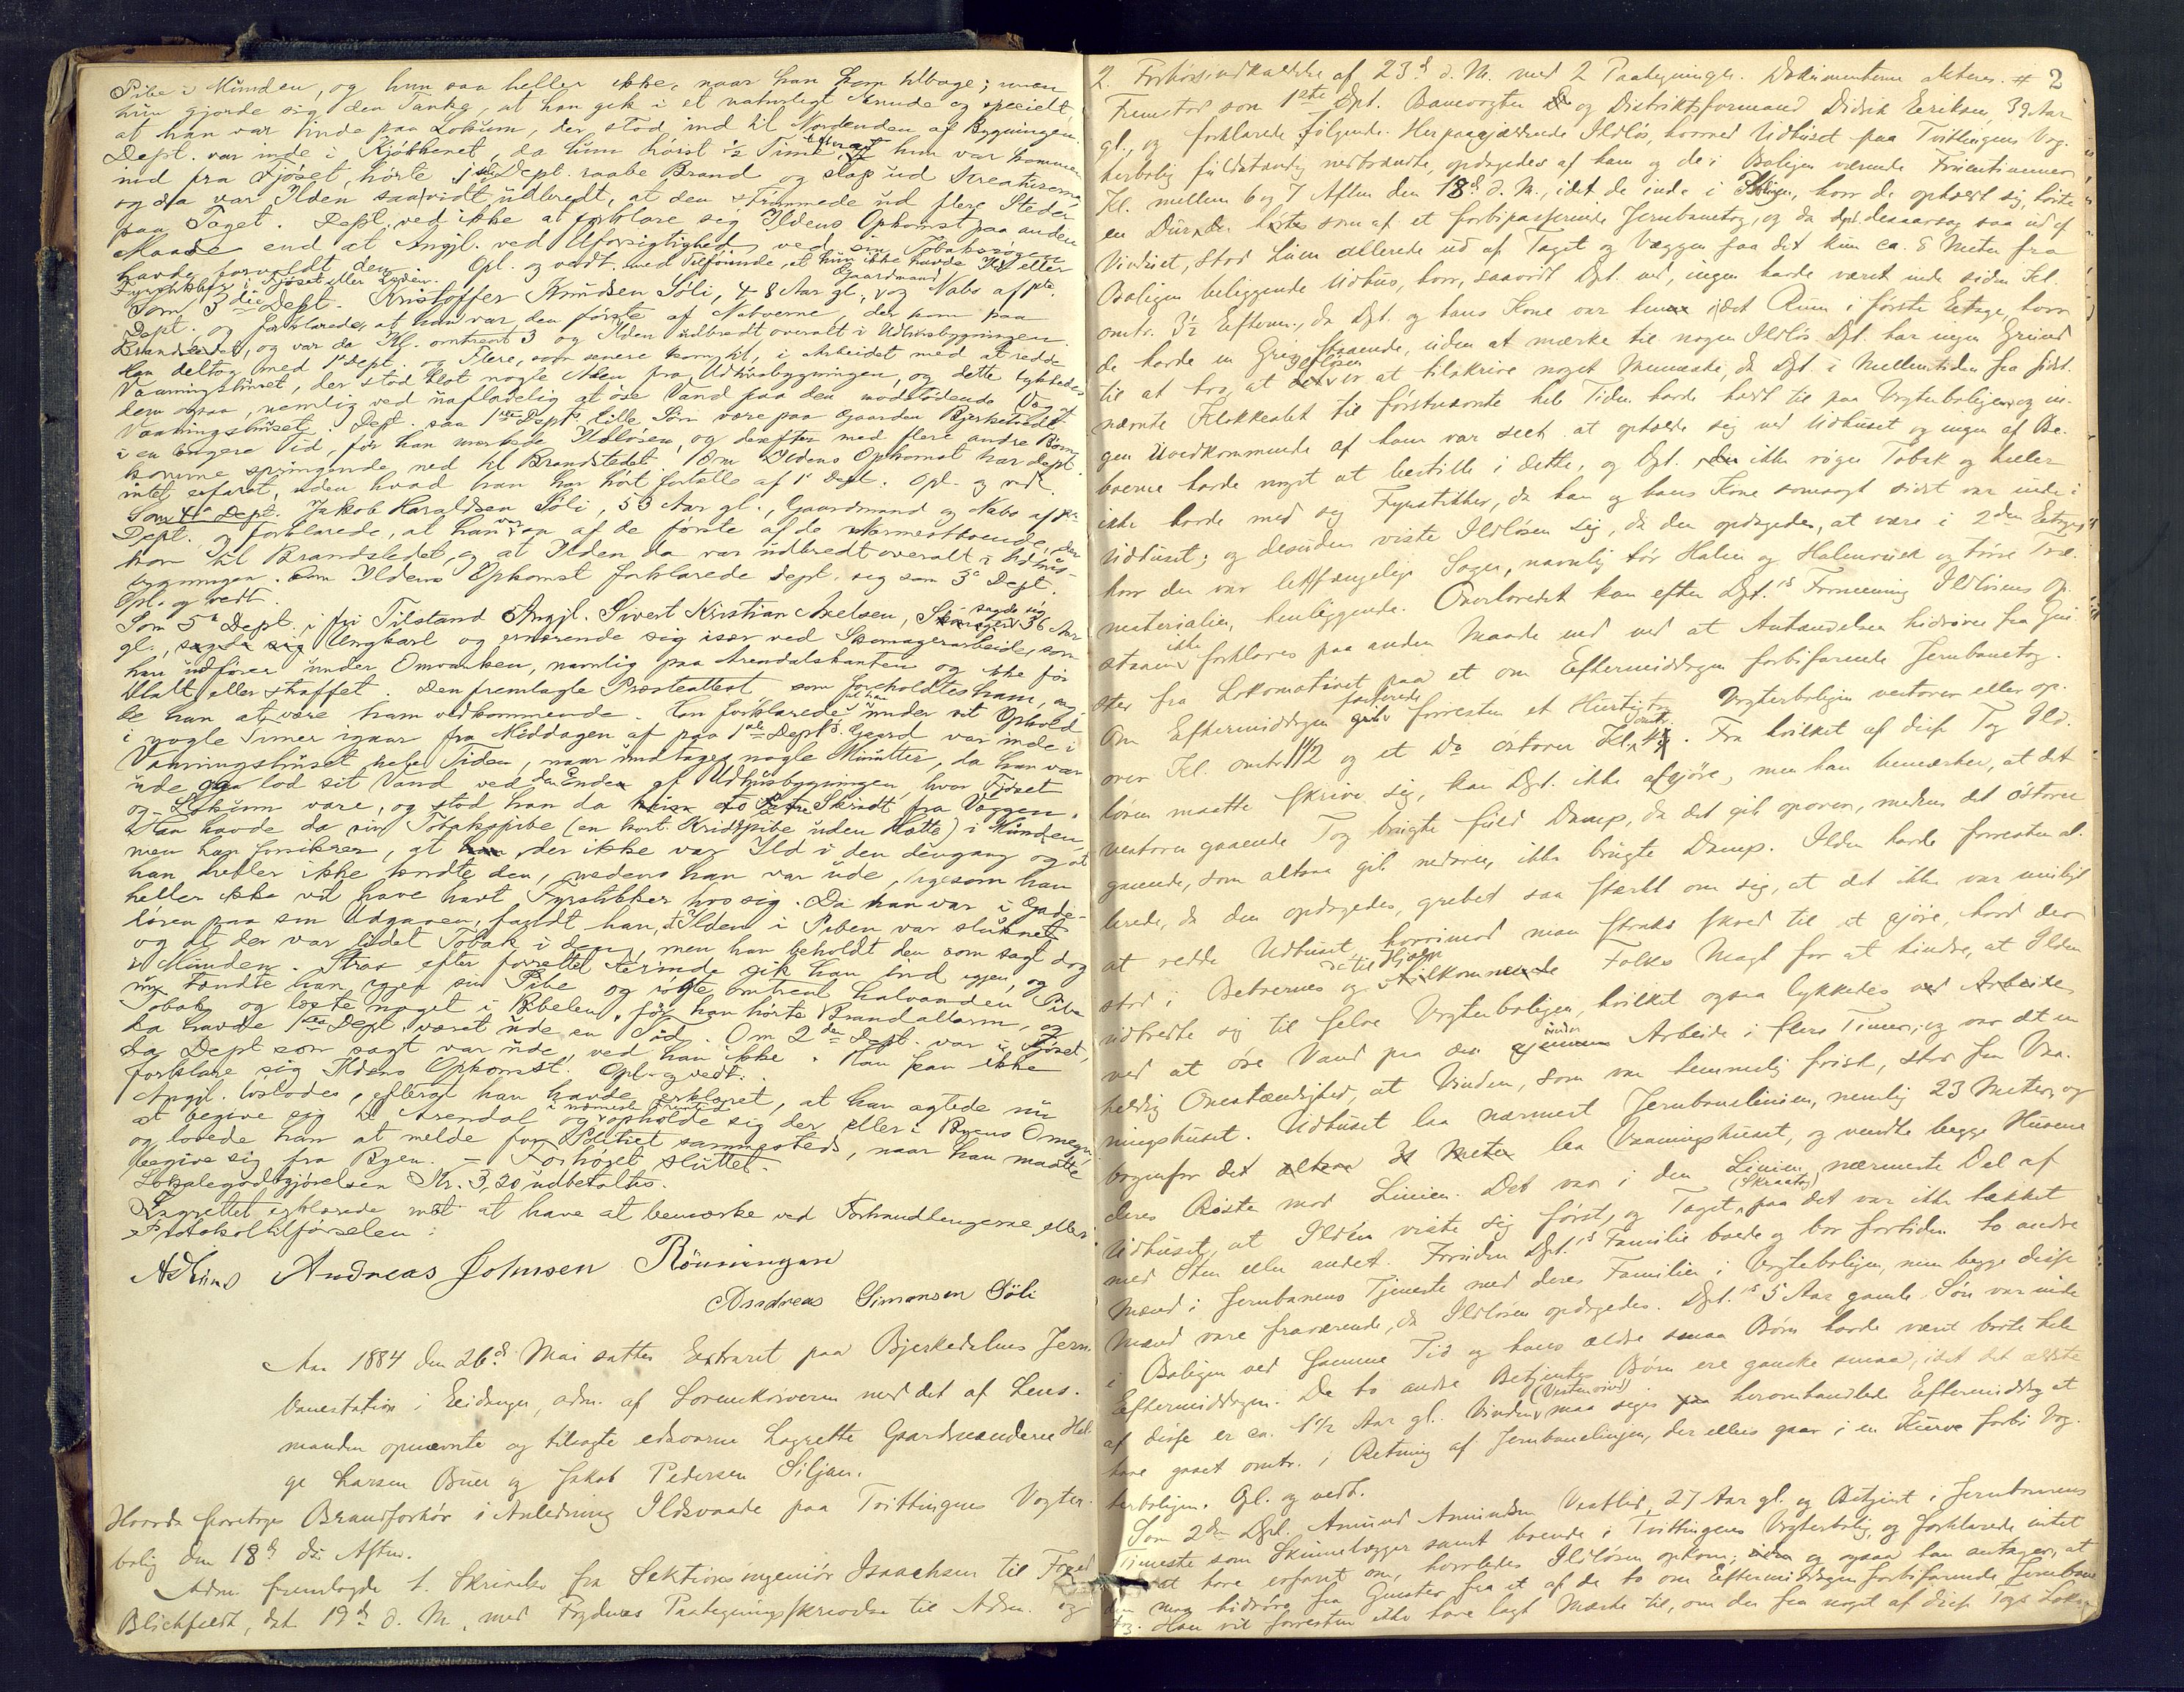 Pibe i Munden, og hun saa heller ikke, naar han kom tilbage; men
hun gjorde sig den Tanke, at han gik i et naturligt Ærinde og specielt,
at han var inde paa Lokum, der stod ind til Nordenden af Bygningen.
Dept. var inde i Kjøkkenet, da hun høist ½ Time efterat hun var kommen
ind fra Fjøset, hørte 1ste Dept. raabe Brand og slap ud Kreaturerne
og da var Ilden saavidt udbredt, at den strømmede ud flere Steder
paa Taget. Dept. ved ikke at forklare sig Ildens Opkomst paa anden
Maade end at Angjl. ved Uforsigtighed ved sin Tobaksrøgen
havde forvoldt den. Opl. og vedt. med Tilføiende, at hun ikke havde Ild eller
Fyrstikker i Fjøset eller Lygten.
Som 3die Dept. Kristoffer Knudsen Søli, 48 Aar gl., Gaardmand og Nabo af 1ste
Dept. og forklarede, at han var den første af Naboerne, der kom paa
Brandstedet, og var da Kl. omtrent 3 og Ilden udbredt overalt i Udhusbygningen.
Han deltog med 1ste Dept. og Flere, som senere kom til, i Arbeidet med at redde
Vaaningshuset, der stod blot nogle Alen fra Udhusbygningen, og dette lykkedes
dem ogsaa, nemlig ved uafladelig at øse Vand paa den modstødende Væg af
Vaaningshuset. Dept. saa 1ste Depts lille Søn være paa Gaarden Bjerketvedt
i en længere Tid, før han mærkede Ildløsen, og derefter med flere andre Børn
komme springende ned til Brandstedet. Om Ildens Opkomst har Dept.
intet erfaret, uden hvad han har hørt fortælle af 1ste Dept. Opl. og vedt.
Som 4de Dept. Jakob Haraldsen Søli, 53 Aar gl., Gaardmand og Nabo af 1ste
Dept. og forklarede, at han var en af de første af de nærmestboende, der
kom til Brandstedet, og at Ilden da var udbredt overalt i Udhus-
bygningen. Om Ildens Opkomst forklarede Dept. sig som 3die Dept.
Opl. og vedt.
Som 5te Dept. i fri Tilstand Angjl. Sivert Kristian Axelsen, sagde sig 36 Aar
gl., Ungkarl og ernærende sig især ved Skomagerarbeide, som
han udfører under Omvanken, namlig paa Arendalskanten og ikke før
tiltalt eller straffet. Den fremlagte Præsteattest, som foreholdtes ham, ang-
be han at være ham vedkommende. Han forklarede at han under sit Ophold
i nogle Timer igaar fra Middagen af paa 1ste Depts. Gaard var inde i
Vaaningshuset hele Tiden, naar undtages nogle Minutter, da han var
ude og lod sit Vand ved den Ende af Udhusbygningen, hvor Fjøset
og Lokum vare, og stod han da to Skridt fra Væggen.
Han havde da sin Tobakspibe (en kort Kridtpibe uden Hætte) i Munden,
men han forsikrer, at der ikke var Ild i den dengang og at
han heller ikke tændte den, medens han var ude, ligesom han
heller ikke vil have havt Fyrstikker hos sig. Da han var i Gade-
døren paa sin Udgaaen, følte han, at Ilden i Piben var slukket
og at der var lidet Tobak i den, men han beholdt den som sagt dog
i Munden. Strax efter forrettet Ærinde gik han ind igjen, og
nu tændte han igjen sin Pibe og røgte omtrent halvanden Pibe
Tobak og læste noget i Bibelen, før han hørte Brandallarm, og
da havde 1ste Dept. været ude en Tid. Om 2den Dept. var i Fjøset,
da Dept. som sagt var ude, ved han ikke. Han kan ikke
forklare sig Ildens Opkomst. Opl. og vedt.
Angjl. løslodes, efterat han havde erklæret, at han agtede nu
at begive sig til Arendal og i nærmeste Fremtid opholde sig der eller i Byens Omegn,
og lovede han at melde for Politiet sammesteds, naar han maatte
begive sig fra Byen. — Forhøret sluttet.
Lokalegodtgjørelsen Kr. 3,20 udbetaltes.
Lagrettet erklærede intet at have at bemærke ved Forhandlingerne eller
Protokoltilførselen:
Andreas Johnsen Rönningen
Andreas Simonsen Söli
Aar 1884 den 26de Mai sattes Extraret paa Bjerkedalens Jern-
banestation i Eidanger, adm. af Sorenskriveren med det af Lens-
manden opnævnte og tilsagte edsvorne Lagrette Gaardmændene Hel-
ge Larsen Buer og Jakob Pedersen Siljan.
Hvorda foretoges Brandforhør i Anledning Ildsvaade paa Tvittingens Vogter-
bolig den 18de ds. Aften.
Adm. fremlagde 1. Skrivelse fra Sektionsingeniør Isaachsen til Foged
Blichfeldt, dat. 19de d. M. med Fogdens Paategningsskrivelse til Adm. og
2. Forhørsindkaldelse af 23de d. M. med 2 Paategninger. Dokumenterne akteres. # 2
Fremstod som 1ste Dpt. Banevogter og Distriktsformand Didrik Eriksen, 39 Aar
gl., og forklarede følgende: Herpaagjældende Ildløs, hvorved Udhuset paa Tvittingens Vog-
terbolig fuldstændig nedbrændte, opdagedes af ham og de i Boligen værende Fruentimmer
Kl. mellem 6 og 7 Aften den 18de d. M., idet de inde i Boligen, hvor de opholdt sig, hørte
en Duren som af et forbipasserende Jernbanetog, og da Dpt. desaarsag saa ud af
Vinduet, stod Luen allerede ud af Taget og Væggen paa det kun ca. 8 Meter fra
Boligen beliggende Udhus, hvor, saavidt Dpt. ved, ingen havde været inde siden Kl.
omtr. 3½ Efterm., da Dpt. og hans Kone var inde i det Rum i første Etage, hvor
de havde en Gris staaende, uden at mærke til nogen Ildløs. Dpt. har ingen Grund
til at tro, at Ildløsen er at tilskrive noget Menneske, da Dpt. i Mellemtiden fra sidst-
nævnte Klokkeslet til førstnævnte hele Tiden havde holdt til paa Vogterboligen og in-
gen Uvedkommende af ham var seet at opholde sig ved Udhuset og ingen af Be-
boerne havde noget at bestille i dette, og Dpt. ikke røger Tobak og heller
ikke havde med sig Fyrstikker, da han og hans Kone somsagt sidst var inde i
Udhuset; og desuden viste Ildløsen sig, da den opdagedes, at være i 2den Etage
hvor der var letfængelige Sager, navnlig tør Halm og Halmrusk og tørre Træ-
materialier, henliggende. Overhovedet kan efter Dpt.s Formening Ildløsens Op-
staaen ikke forklares paa anden Maade end ved at Antændelsen hidrører fra Gni-
ster fra Lokomotivet paa et om Eftermiddagen forbifarende Jernbanetog.
Om Eftermiddagen passerede forresten et Hurtigtog Vogterboligen vestover eller op-
over Kl. omtr. 1½ og et Do østover Kl. omtr. 4. Fra hvilket af disse Tog Ild-
løsen maatte skrive sig, kan Dpt. ikke afgjøre, men han bemærker, at det
vestover gaaende Tog brugte fuld Damp, da det gik opover, medens det østover
gaaende, som altsaa gik nedover, ikke brugte Damp. Ilden havde forresten al-
lerede, da den opdagedes, grebet saa stærkt om sig, at det ikke var muligt
at redde Udhuset, hvorimod man straks skred til at gjøre, hvad der
stod i Beboernes og de til Hjælp tilkomne Folks Magt for at hindre, at Ilden
udbredte sig til selve Vogterboligen, hvilket ogsaa lykkedes
ved at øse Vand paa den under Arbeide i flere Timer, og var det en
heldig Omstændighed, at Vinden, som var temmelig frisk, stod fra Vaa-
ningshuset. Udhuset laa nærmest Jernbanelinien, nemlig 23 Meter, og
bagenfor det laa Vaaningshuset, og vendte begge Husene
deres Røste mod Linien. Det var i den Linien nærmeste Del af
Udhuset, at Ilden viste sig først, og Taget (Skraatag) paa det var ikke tækket
med Sten eller andet. Foruden Dpt.s Familie boede og bor fortiden to andre
Mænd i Jernbanens Tjeneste med deres Familier i Vogterboligen, men begge disse
Mænd vare fraværende, da Ildløsen opdagedes. Dpt.s 5 Aar gamle Søn var inde
i Boligen ved samme Tid og hans ældre smaa Børn havde været borte hele
Eftermiddagen. De to andre Betjentes Børn ere ganske smaa, idet det ældste
af disse er ca. 1½ Aar gl. Vinden (Vestenvind) maa siges heromhandlede Eftermiddag at
have gaaet omtr. i Retning af Jernbanelinjen, der ellers gaar i en Kurve forbi Vog-
terboligen. Opl. og vedt.
Som 2den Dpt. Amund Amundsen Vestlid, 27 Aar gl. og Betjent i Jernbanens
Tjeneste som Skinnelægger samt boende i Tvittingens Vogterbolig, og forklarede intet
at have erfaret om, hvorledes Ildløsen opkom; og ogsaa han antager, at
den maa hidrøre fra Gnister fra et af de to om Eftermiddagen forbifarende Jernbane-
tog. Han vil forresten ikke have lagt Mærke til, om der fra noget af disse Togs Loko-